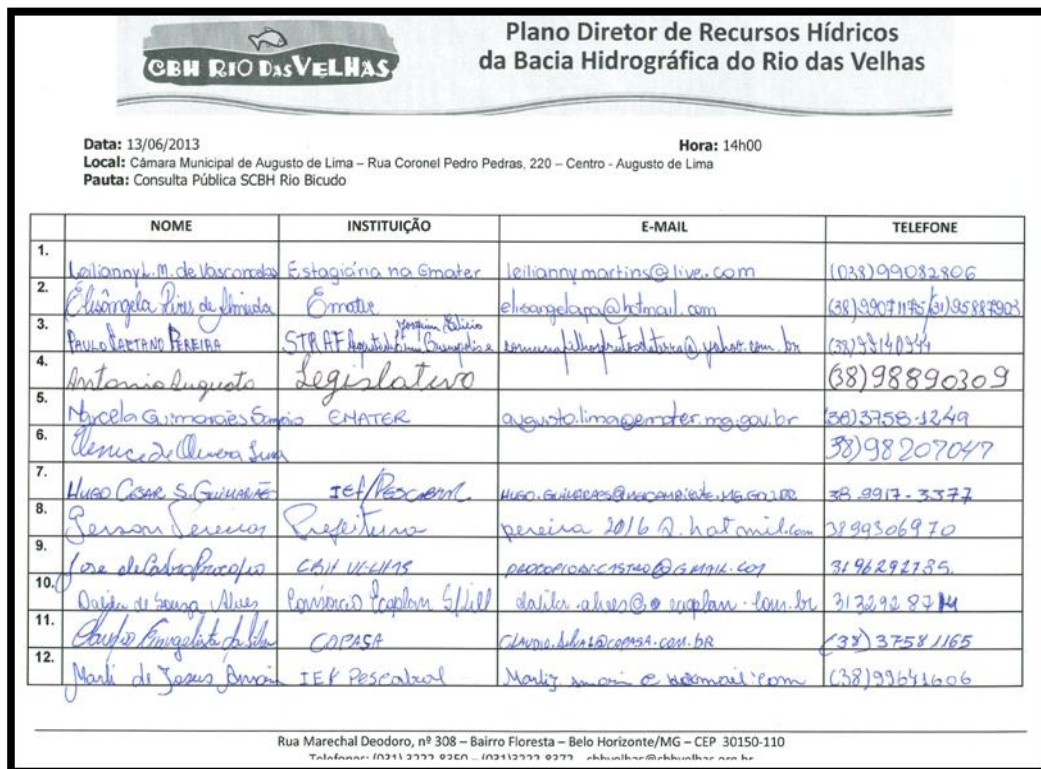 CBH RIO DAS VELHAS
Plano Diretor de Recursos Hídricos
da Bacia Hidrográfica do Rio das Velhas
Data: 13/06/2013 Hora: 14h00
Local: Câmara Municipal de Augusto de Lima – Rua Coronel Pedro Pedras, 220 – Centro - Augusto de Lima
Pauta: Consulta Pública SCBH Rio Bicudo
NOME INSTITUIÇÃO E-MAIL TELEFONE
1. Leilianny L. M. de Vasconcelos Estagiária na Emater leiliannymartins@live.com (038)99082806
2. Elisângela Pires de Almeida Emater elisangelapa@hotmail.com (38)99071175/(31)95887903
3. PAULO CAETANO PEREIRA STRAF
4. Antonio Augusto Legislativo (38)98890309
5. Marcela Guimarães EMATER augusto.lima@emater.mg.gov.br (38)3758-1249
6. de Oliveira Lima 38)98207047
7. HUGO CESAR S. GUIMARÃES IEF/PESCABRAL 38-9917-3377
8. Gerson Pereira Prefeitura pereira 2016 @.hotmil.com 3899306970
9. Jose de Castro Procopio CBH VELHAS PROCOPIODECASTRO@GMAIL.COM 3196292785.
10. Dalila de Souza Alves Consórcio Ecoplan Skill
11. Claudio Evangelista da Silva COPASA CLAUDIO.SILVA@COPASA.COM.BR (38) 37581165
12. Marli de Jesus IEF Pescabral (38)99641606
Rua Marechal Deodoro, nº 308 – Bairro Floresta – Belo Horizonte/MG – CEP 30150-110
Telefones: (031) 3222-8350 – (031)3222-8372 cbhvelhas@cbhvelhas.org.br